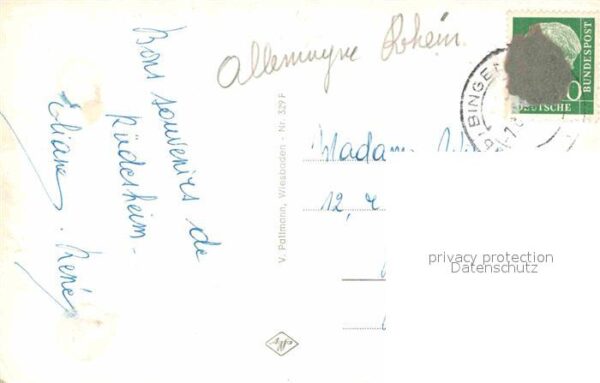 Bons souvenirs de
Rüdesheim.
Eliane. René
Allemagne Rhein
V. Pallmann, Wiesbaden - Nr. 329 F
Agfa
BINGE
DEUTSCHE
BUNDESPOST
0
Madam
12, r
privacy protection
Datenschutz